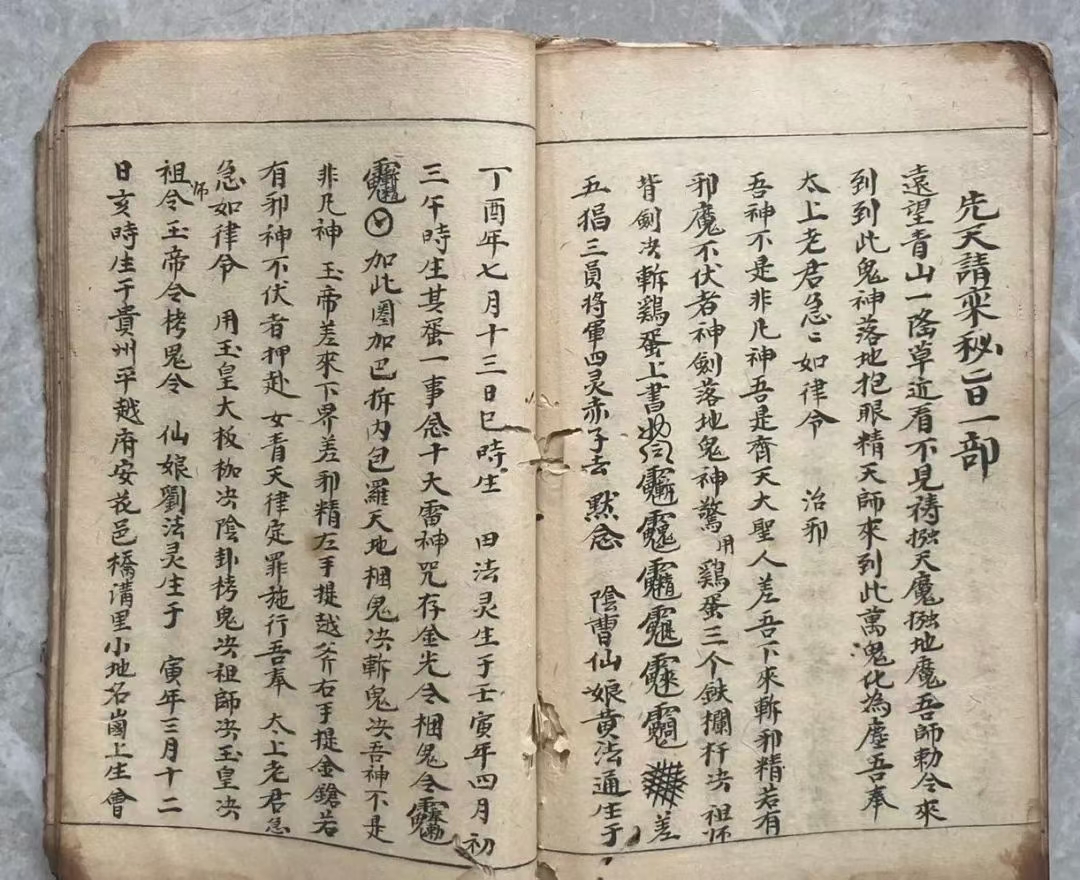 先天請來秘旨一部
遠望青山一隆草近看不見禱拗天魔拗地魔吾師勅令來
到到此鬼神落地抱眼精天師來到此萬鬼化為塵吾奉
太上老君急〻如律令 治邪
吾神不是非凡神吾是齊天大聖人差吾下來斬邪精若有
邪魔不伏者神劍落地鬼神驚用鷄蛋三个鉄欄杆决祖师
背劍决斬鷄蛋上書 差
五猖三員將軍四灵赤子去 默念 陰曹仙娘黄法通生于
丁酉年七月十三日巳時生 田法灵生于壬寅年四月初
三午時生其蛋一事念十大雷神咒存金光令梱鬼令
加此圈加巴拆内包羅天地梱鬼决斬鬼决吾神不是
非凡神 玉帝差來下界差邪精左手提越斧右手提金鎗若
有邪神不伏者押赴 女青天律定罪施行吾奉 太上老君急
急如律令 用玉皇大板枷决陰卦栲鬼决祖師决玉皇决
祖师令玉帝令栲鬼令 仙娘劉法灵生于 寅年三月十二
日亥時生于貴州平越府安花邑橋溝里小地名崗上生曾